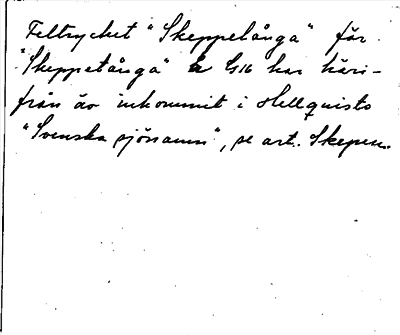 Feltrycket "Skeppelånga" för
"Skeppetånga" å G16 har häri-
från äv inkommit i Hellquists
"Svenska sjönamn", se art. Skepen.